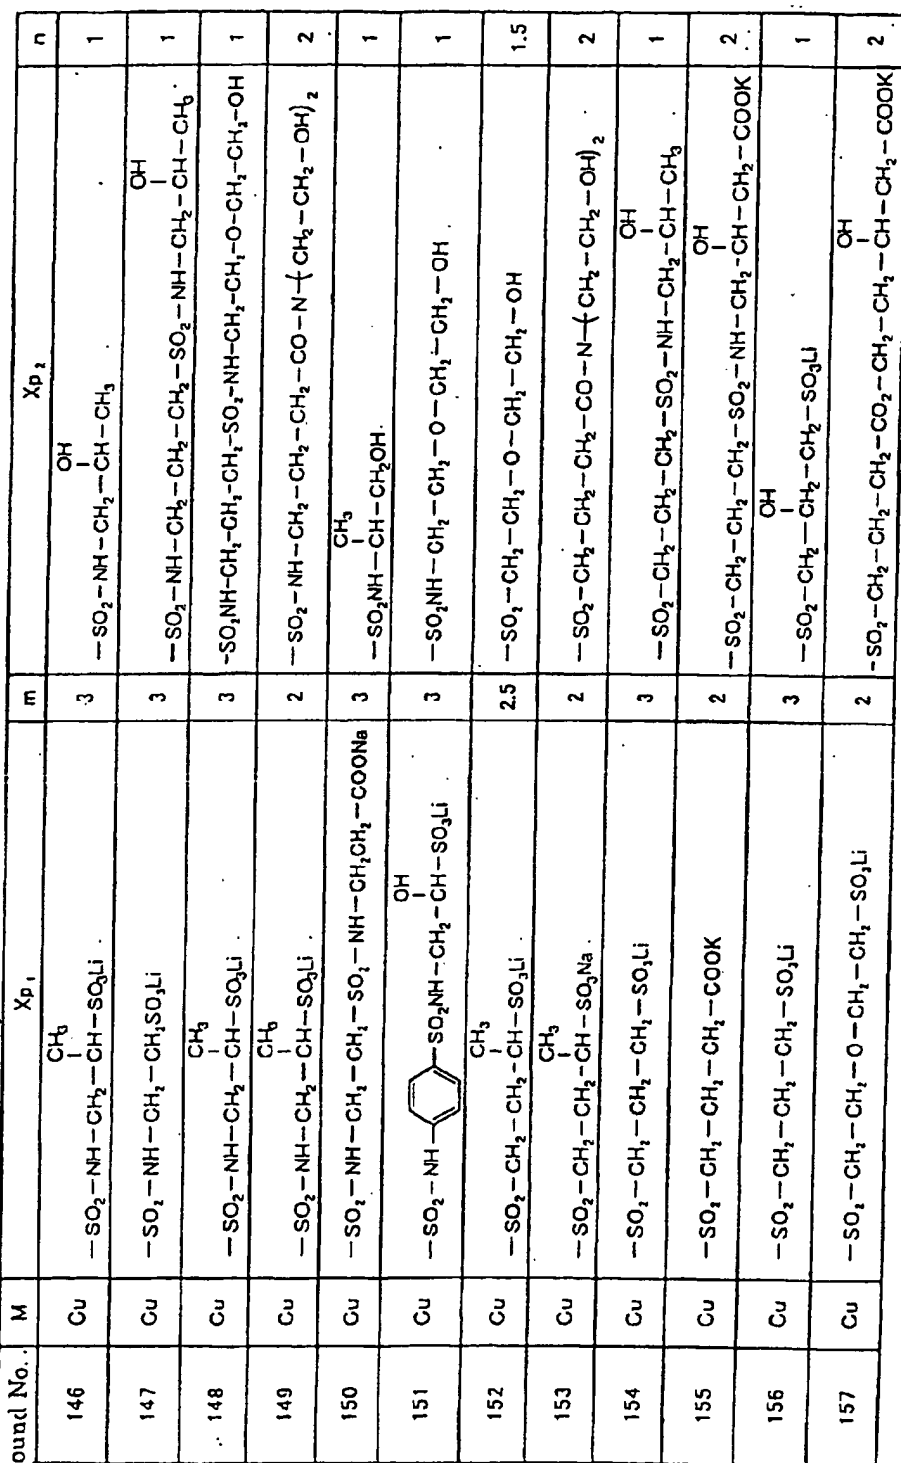 ound No. . M Xp₁ m Xp₂ n
CH₃ OH
146 Cu —SO₂—NH—CH₂—CH—SO₃Li 3 —SO₂—NH—CH₂—CH—CH₃ 1
OH
147 Cu —SO₂—NH—CH₂—CH₂SO₃Li 3 —SO₂—NH—CH₂—CH₂—CH₂—SO₂—NH—CH₂—CH—CH₃ 1
CH₃
148 Cu —SO₂—NH—CH₂—CH—SO₃Li 3 -SO₂NH-CH₂-CH₂-CH₂-SO₂-NH-CH₂-CH₂-O-CH₂-CH₂-OH 1
CH₃
149 Cu —SO₂—NH—CH₂—CH—SO₃Li 2 —SO₂—NH—CH₂—CH₂—CH₂—CO—N—(CH₂—CH₂—OH)₂ 2
CH₃
150 Cu —SO₂—NH—CH₂—CH₂—SO₂—NH—CH₂CH₂—COONa 3 —SO₂NH—CH—CH₂OH 1
OH
151 Cu —SO₂—NH— —SO₂NH—CH₂—CH—SO₃Li 3 —SO₂NH—CH₂—CH₂—O—CH₂—CH₂—OH 1
CH₃
152 Cu —SO₂—CH₂—CH₂—CH—SO₃Li 2.5 —SO₂—CH₂—CH₂—O—CH₂—CH₂—OH 1.5
CH₃
153 Cu —SO₂—CH₂—CH₂—CH—SO₃Na 2 —SO₂—CH₂—CH₂—CH₂—CO—N—(CH₂—CH₂—OH)₂ 2
OH
154 Cu —SO₂—CH₂—CH₂—CH₂—SO₃Li 3 —SO₂—CH₂—CH₂—CH₂—SO₂—NH—CH₂—CH—CH₃ 1
OH
155 Cu —SO₂—CH₂—CH₂—CH₂—COOK 2 —SO₂—CH₂—CH₂—CH₂—SO₂—NH—CH₂—CH—CH₂—COOK 2
OH
156 Cu —SO₂—CH₂—CH₂—CH₂—SO₃Li 3 —SO₂—CH₂—CH₂—CH₂—SO₃Li 1
OH
157 Cu —SO₂—CH₂—CH₂—O—CH₂—CH₂—SO₃Li 2 -SO₂—CH₂—CH₂—CH₂—CO₂—CH₂—CH₂—CH—CH₂—COOK 2